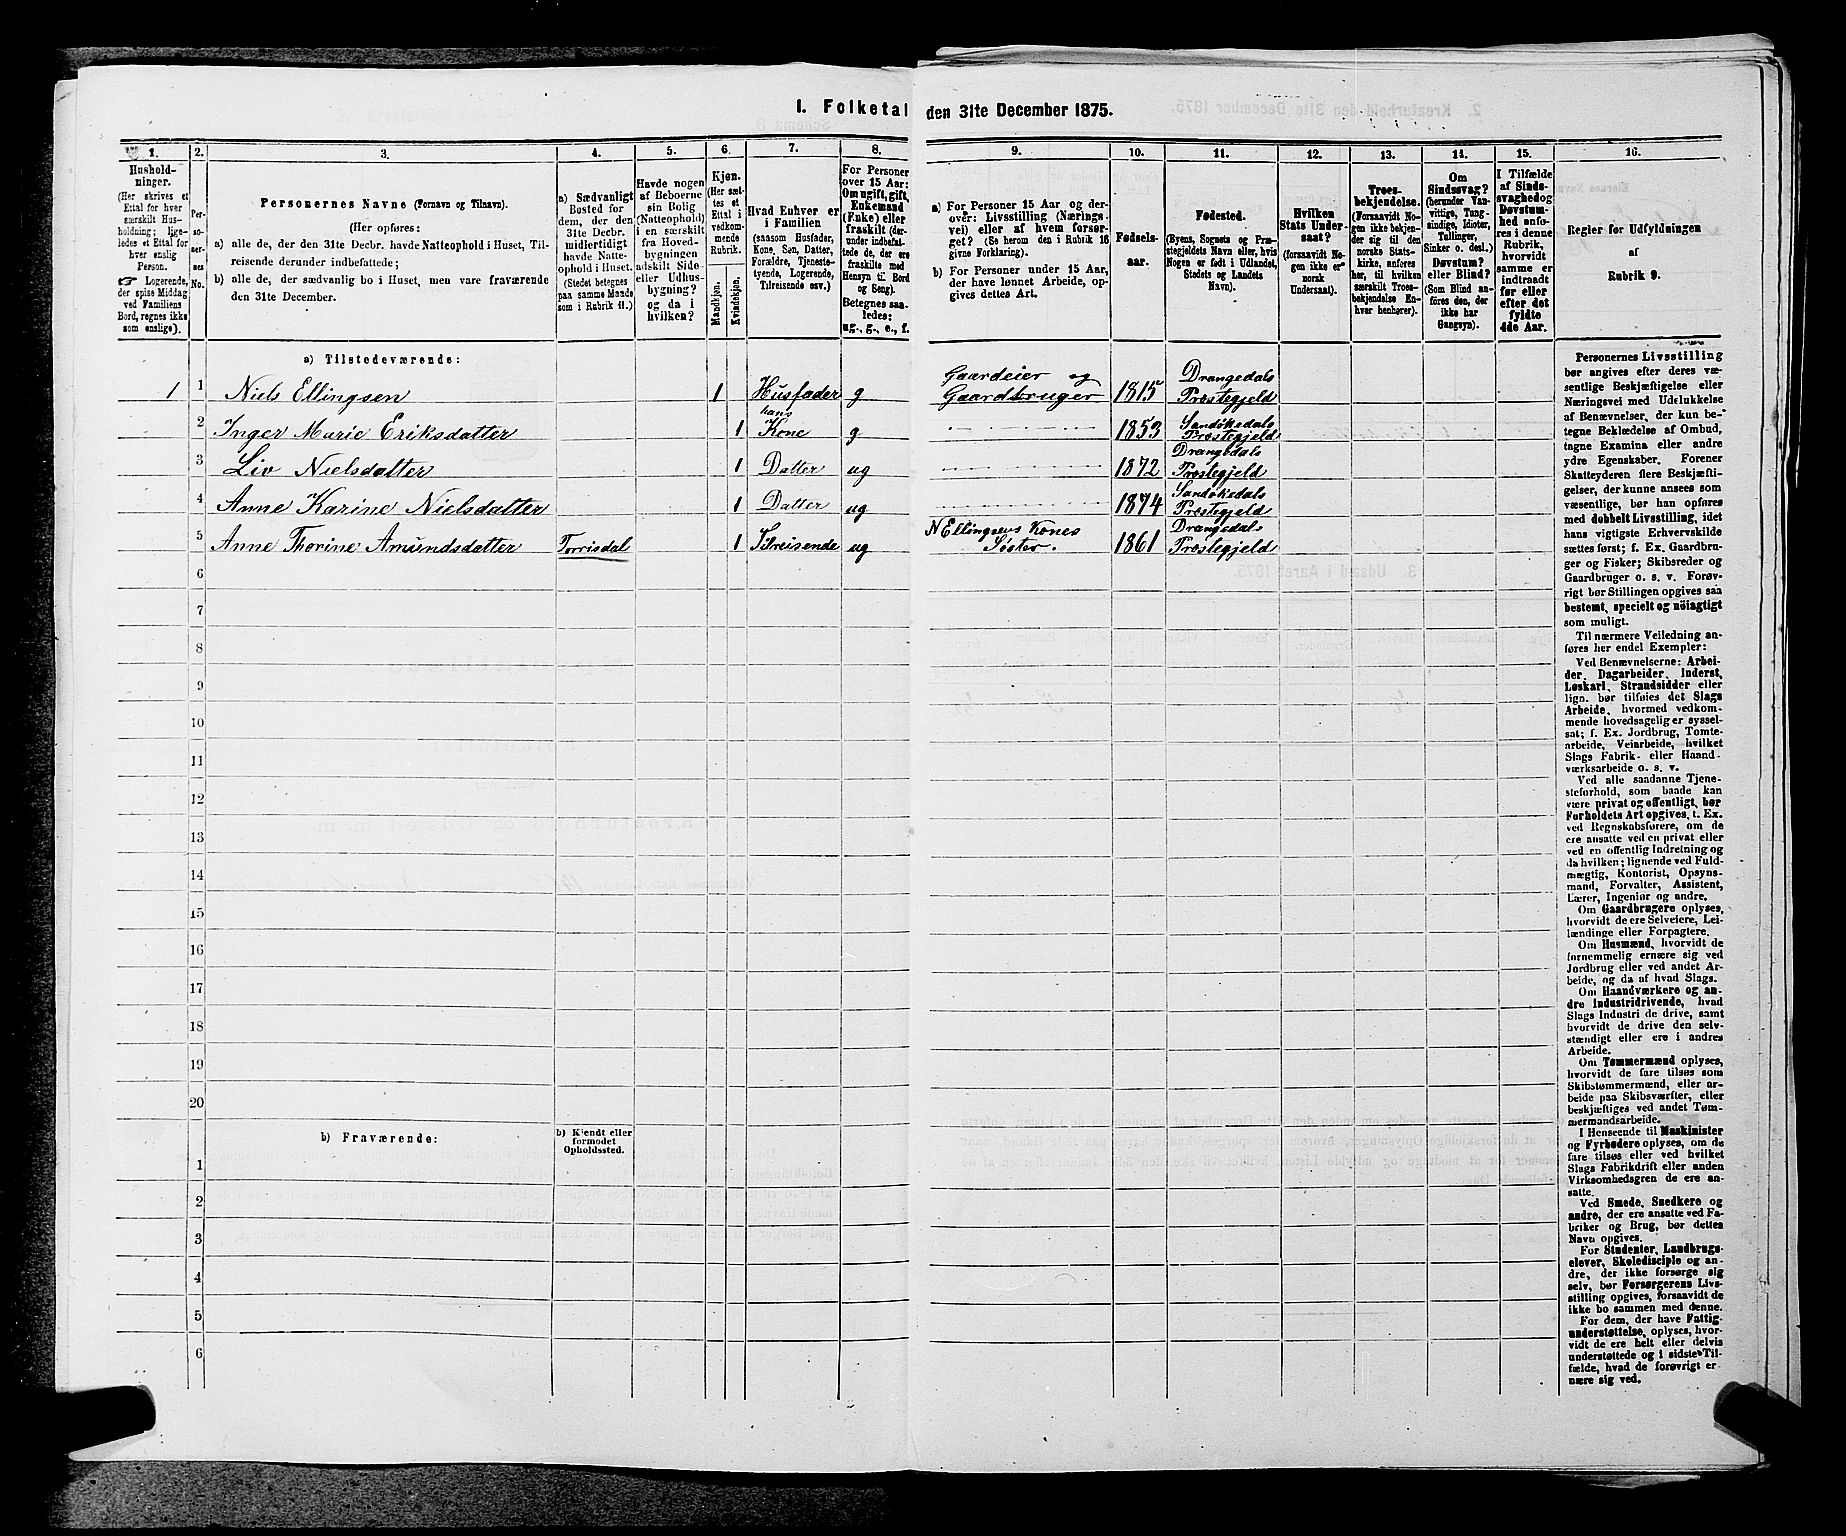 I. Folketal den 31te December 1875.
1.
Hushold-
ninger.
(Her skrives et
Ettal for hver
særskilt Hus-
holdning; lige-
ledes et Ettal for
hver enslig
Person.
☛ Logerende,
der spise Middag
ved Familiens
Bord, regnes ikke
som enslige).
2.
Per-
so-
ner-
nes
No.
3.
Personernes Navne (Fornavn og Tilnavn).
(Her opføres:
a) alle de, der den 31te Decbr. havde Natteophold i Huset, Til-
reisende derunder indbefattede;
b) alle de, der sædvanlig bo i Huset, men vare fraværende
den 31te December.
4.
a) Sædvanligt
Bosted for
dem, der den
31te Decbr.
midlertidigt
havde Natte-
ophold i Huset.
(Stedet betegnes
paa samme Maade
som i Rubrik 11.)
5.
Havde nogen
af Beboerne
sin Bolig
(Natteophold)
i en særskilt
fra Hoved-
bygningen
adskilt Side-
eller Udhus-
bygning?
og da i
hvilken?
6.
Kjøn.
(Her sæt-
tes et
Ettal i
vedkom-
mende
Rubrik.
Mandkjøn.
Kvindekjøn.
7.
Hvad Enhver er
i Familien
(saasom Husfader,
Kone, Søn, Datter,
Forældre, Tjeneste-
tyende, Logerende,
Tilreisende osv.)
8.
For Personer
over 15 Aar:
Om ugift, gift,
Enkemand
(Enke) eller
fraskilt (der-
under indbefat-
tede de, der ere
fraskilte med
Hensyn til Bord
og Seng).
Betegnes saa-
ledes:
ug., g., e., f.
9.
a) For Personer 15 Aar og der-
over: Livsstilling (Nærings-
vei) eller af hvem forsør-
get? (Se herom den i Rubrik 16
givne Forklaring).
b) For Personer under 15 Aar,
der have lønnet Arbeide, op-
gives dettes Art.
10.
Fødsels-
aar.
11.
Fødested.
(Byens, Sognets og Præ-
stegjeldets Navn eller, hvis
Nogen er født i Udlandet,
Stedets og Landets
Navn).
12.
Hvilken
Stats Under-
saat?
(forsaavidt No-
gen ikke er
norsk
Undersaat).
13.
Troes-
bekjendelse.
(Forsaavidt No-
gen ikke bekjen-
der sig til den
norske Stats-
kirke, anføres
her, til hvilken
særskilt Troes-
bekjendelse En-
hver henhører).
14.
Om
Sindssvag?
(herunder Van-
vittige, Tung-
sindige, Idioter,
Tullinger,
Sinker o. desl.)
Døvstum?
eller Blind?
(Som Blind an-
føres den, der
ikke har
Gangsyn).
15.
I Tilfælde
af Sinds-
svaghed og
Døvstum-
hed anfø-
res i denne
Rubrik,
hvorvidt
samme er
indtraadt
før eller
efter det
fyldte
4de Aar.
16.
Regler for Udfyldningen
af
Rubrik 9.
a) Tilstedeværende:
1 1 Niels Ellingsen 1 Husfader g Gaardeier og Gaardbruger 1815 Drangedals Præstegjeld
2 Inger Marie Eriksdatter 1 hans Kone g 1853 Sandøkedals Præstegjeld
3 Liv Nielsdatter 1 Datter ug 1872 Drangedals Præstegjeld
4 Anne Karine Nielsdatter 1 Datter ug 1874 Sandøkedals Præstegjeld
5 Anne Thorine Amundsdatter Torrisdal 1 Tilreisende ug N Ellingsens Kones Søster. 1861 Drangedals Præstegjeld
6
7
8
9
10
11
12
13
14
15
16
17
18
19
20
b) Fraværende:
b) Kjendt eller
formodet
Opholdssted.
1
2
3
4
5
6
Personernes Livsstilling
bør angives efter deres væ-
sentlige Beskjæftigelse eller
Næringsvei med Udelukkelse
af Benævnelser, der kun be-
tegne Beklædelse af Ombud,
tagne Examina eller andre
ydre Egenskaber. Forener
Skatteyderen flere Beskjæfti-
gelser, der kunne ansees som
væsentlige, bør han opføres
med dobbelt Livsstilling, idet
hans vigtigste Erhvervskilde
sættes først; f. Ex. Gaardbru-
ger og Fisker; Skibsreder og
Gaardbruger o. s. v. Forøv-
rigt bør Stillingen opgives saa
bestemt, specielt og nöiagtigt
som muligt.
Til nærmere Veiledning an-
føres her endel Exempler:
Ved Benævnelserne: Arbei-
der, Dagarbeider, Inderst,
Løskarl, Strandsidder eller
lign. bør tilføies det Slags
Arbeide, hvormed vedkom-
mende hovedsagelig er syssel-
sat; f. Ex. Jordbrug, Tomte-
arbeide, Veiarbeide, hvilket
Slags Fabrik- eller Haand-
værksarbeide o. s. v.
Ved alle saadanne Tjene-
steforhold, som baade kan
være privat og offentligt, bør
Forholdets Art opgives, t. Ex.
ved Regnskabsførere, om de
ere ansatte ved en privat eller
ved en offentlig Indretning og
da hvilken; lignende ved Fuld-
mægtig, Kontorist, Opsyns-
mand, Forvalter, Assistent,
Lærer, Ingeniør og andre.
Om Gaardbrugere oplyses,
hvorvidt de ere Selveiere, Lei-
lændinge eller Forpagtere.
Om Husmænd, hvorvidt de
fornemmelig ernære sig ved
Jordbrug eller ved andet Ar-
beide, og da af hvad Slags.
Om Haandværkere og an-
dre Industridrivende, hvad
Slags Industri de drive, samt
hvorvidt de drive den selv-
stændigt eller ere i andres
Arbeide.
Om Tømmermænd oplyses,
hvorvidt de fare tilsøs som
Skibstømmermænd, eller ar-
beide paa Skibsværfter, eller
beskjæftiges ved andet Tøm-
mermandsarbeide.
I Henseende til Maskinister
og Fyrbødere oplyses, om de
fare tilsøs eller ved hvilket
Slags Fabrikdrift eller anden
Virksomhedsgren de ere an-
satte.
Ved Smede, Snedkere og
andre, der ere ansatte ved Fa-
briker og Brug, bør dettes
Navn opgives.
For Studenter, Landbrugs-
elever, Skoledisciple og an-
dre, der ikke forsørge sig
selv, bør Forsørgerens Livs-
stilling opgives, forsaavidt de
ikke bo sammen med denne.
For dem, der have Fattig-
understøttelse, oplyses, hvor-
vidt de ere helt eller delvis
understøttede og i sidste Til-
fælde, hvad de forøvrigt er-
nære sig ved.